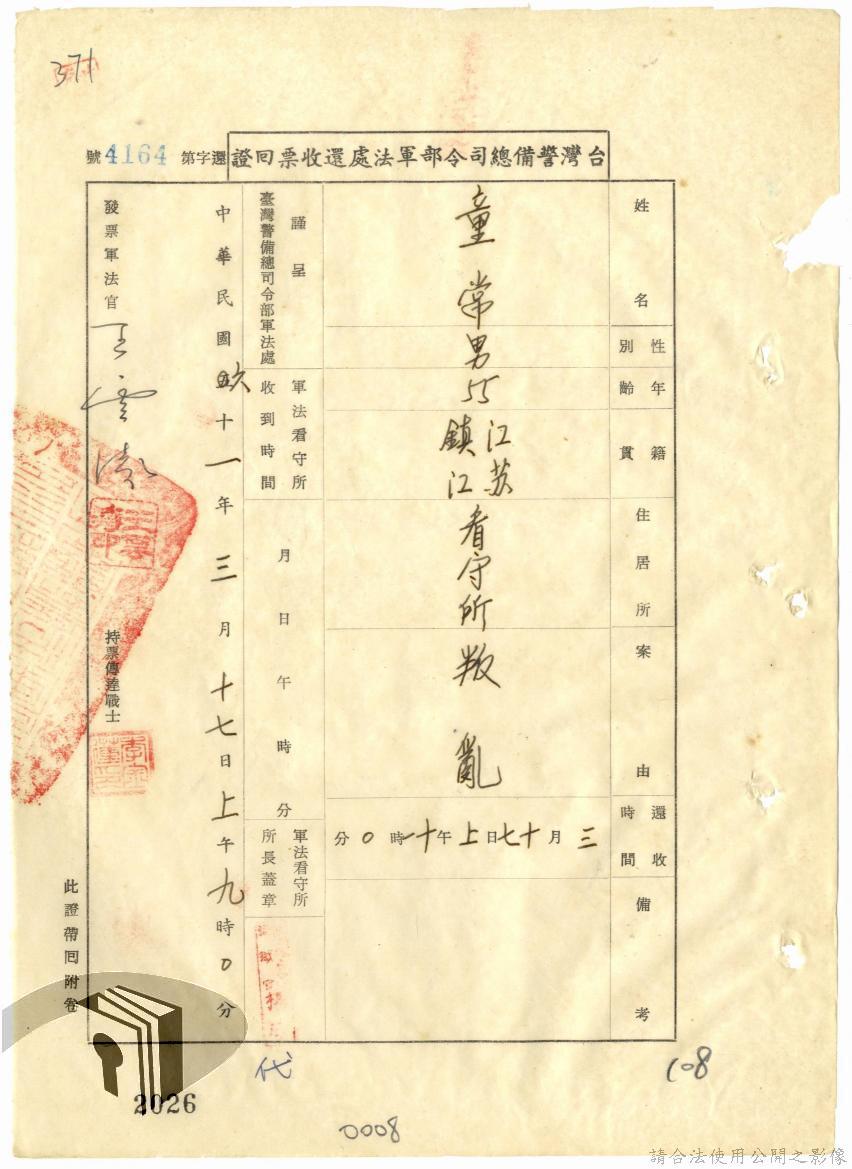 371
台灣警備總司令部軍法處還收票回證
還字第4164號
姓名
童常
性別
男
年齡
55
籍貫
江苏
鎮江
住居所
看守所
案由
叛亂
還收時間
三月十七日上午十一時0分
備考
謹呈
臺灣警備總司令部軍法處
軍法看守所
收到時間
月日午時分
軍法看守所
所長蓋章
中華民國六十一年三月十七日上午九時0分
發票軍法官
持票傳達戰士
此證帶回附卷
代
108
2026
0008
請合法使用公開之影像